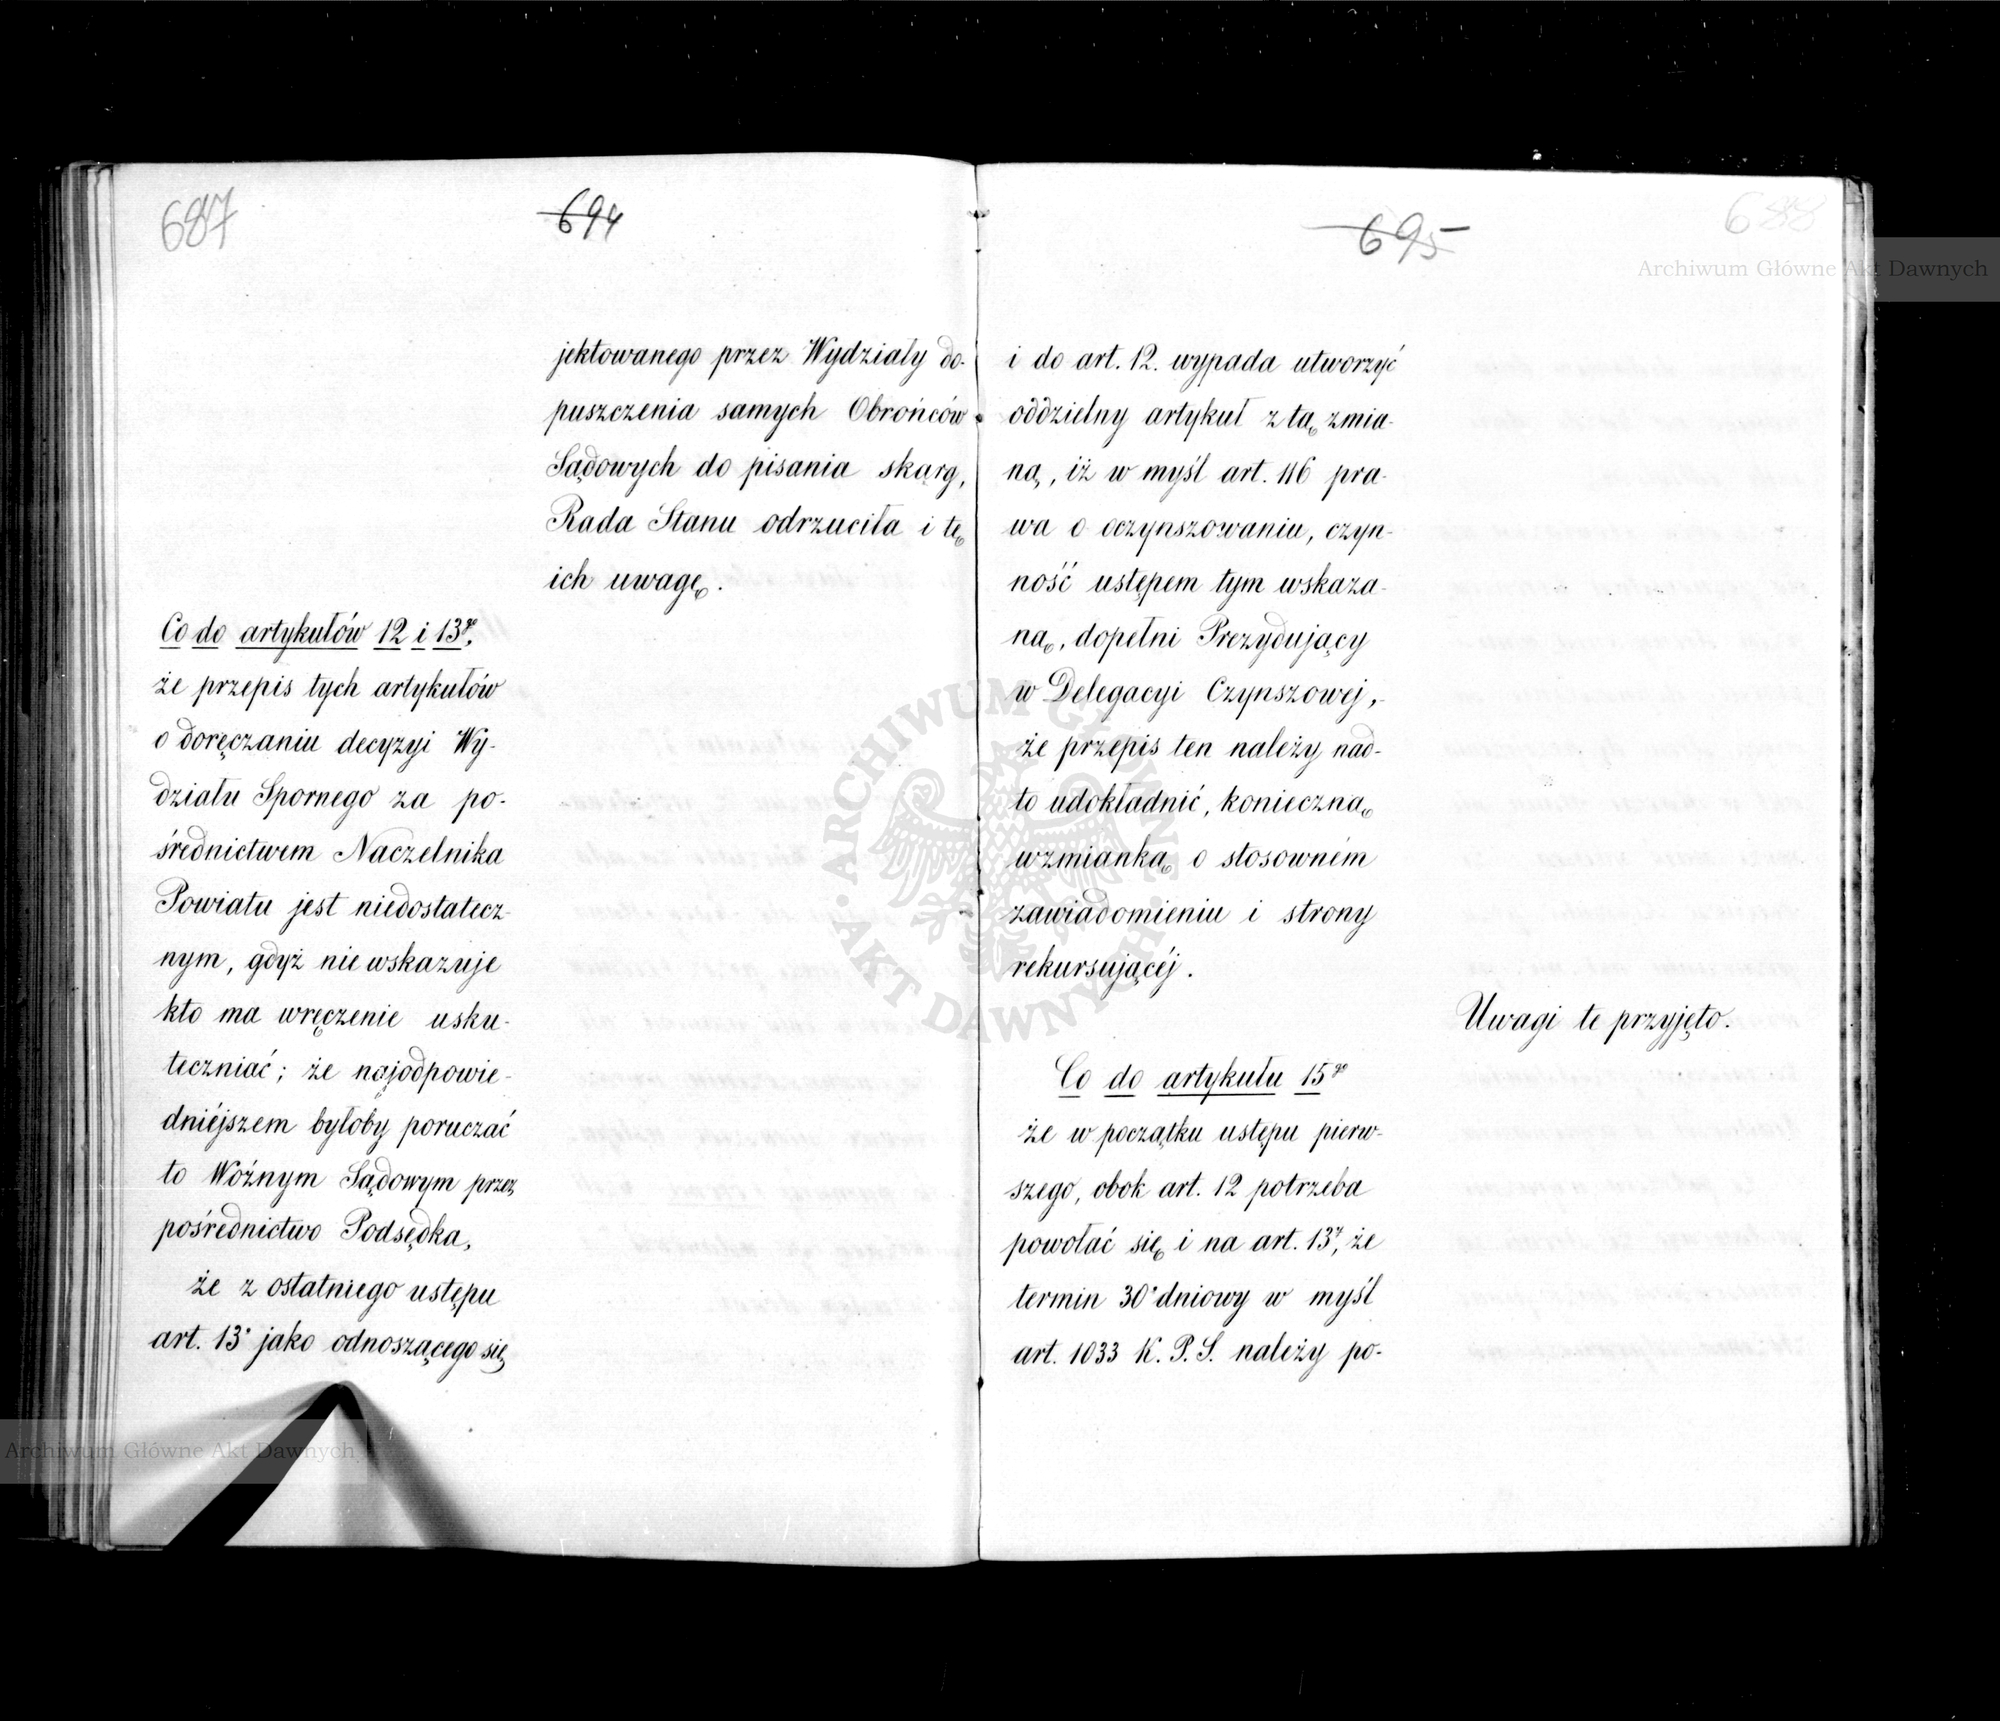 687
694
jektowanego przez Wydziały do-
puszczenia samych Obrońców
Sądowych do pisania skarg,
Rada Stanu odrzuciła i tę
ich uwagę.
Co do artykułów 12 i 13go,
że przepis tych artykułów
o doręczaniu decyzyi Wy-
działu Spornego za po-
średnictwem Naczelnika
Powiatu jest niedostatecz-
nym, gdyż nie wskazuje
kto ma wręczenie usku-
teczniać; że najodpowie-
dniéjszem byłoby poruczać
to Woźnym Sądowym przez
pośrednictwo Podsędka,
że z ostatniego ustępu
art. 13° jako odnoszącego się
695
688
Archiwum Główne Akt Dawnych
i do art. 12. wypada utworzyć
oddzielny artykuł z tą zmia-
ną, iż w myśl art. 116 pra-
wa o oczynszowaniu, czyn-
ność ustępem tym wskaza-
ną, dopełni Prezydujący
w Delegacyi Czynszowej,-
że przepis ten należy nad-
to udokładnić, konieczną
wzmianką o stosowném
zawiadomieniu i strony
rekursującéj.
Uwagi te przyjęto.
Co do artykułu 15go
że w początku ustępu pierw-
szego, obok art. 12 potrzeba
powołać się i na art. 13y, że
termin 30°dniowy w myśl
art. 1033 K. P. S. należy po-
ARCHIWUM GŁÓWNE
AKT DAWNYCH
Archiwum Główne Akt Dawnych